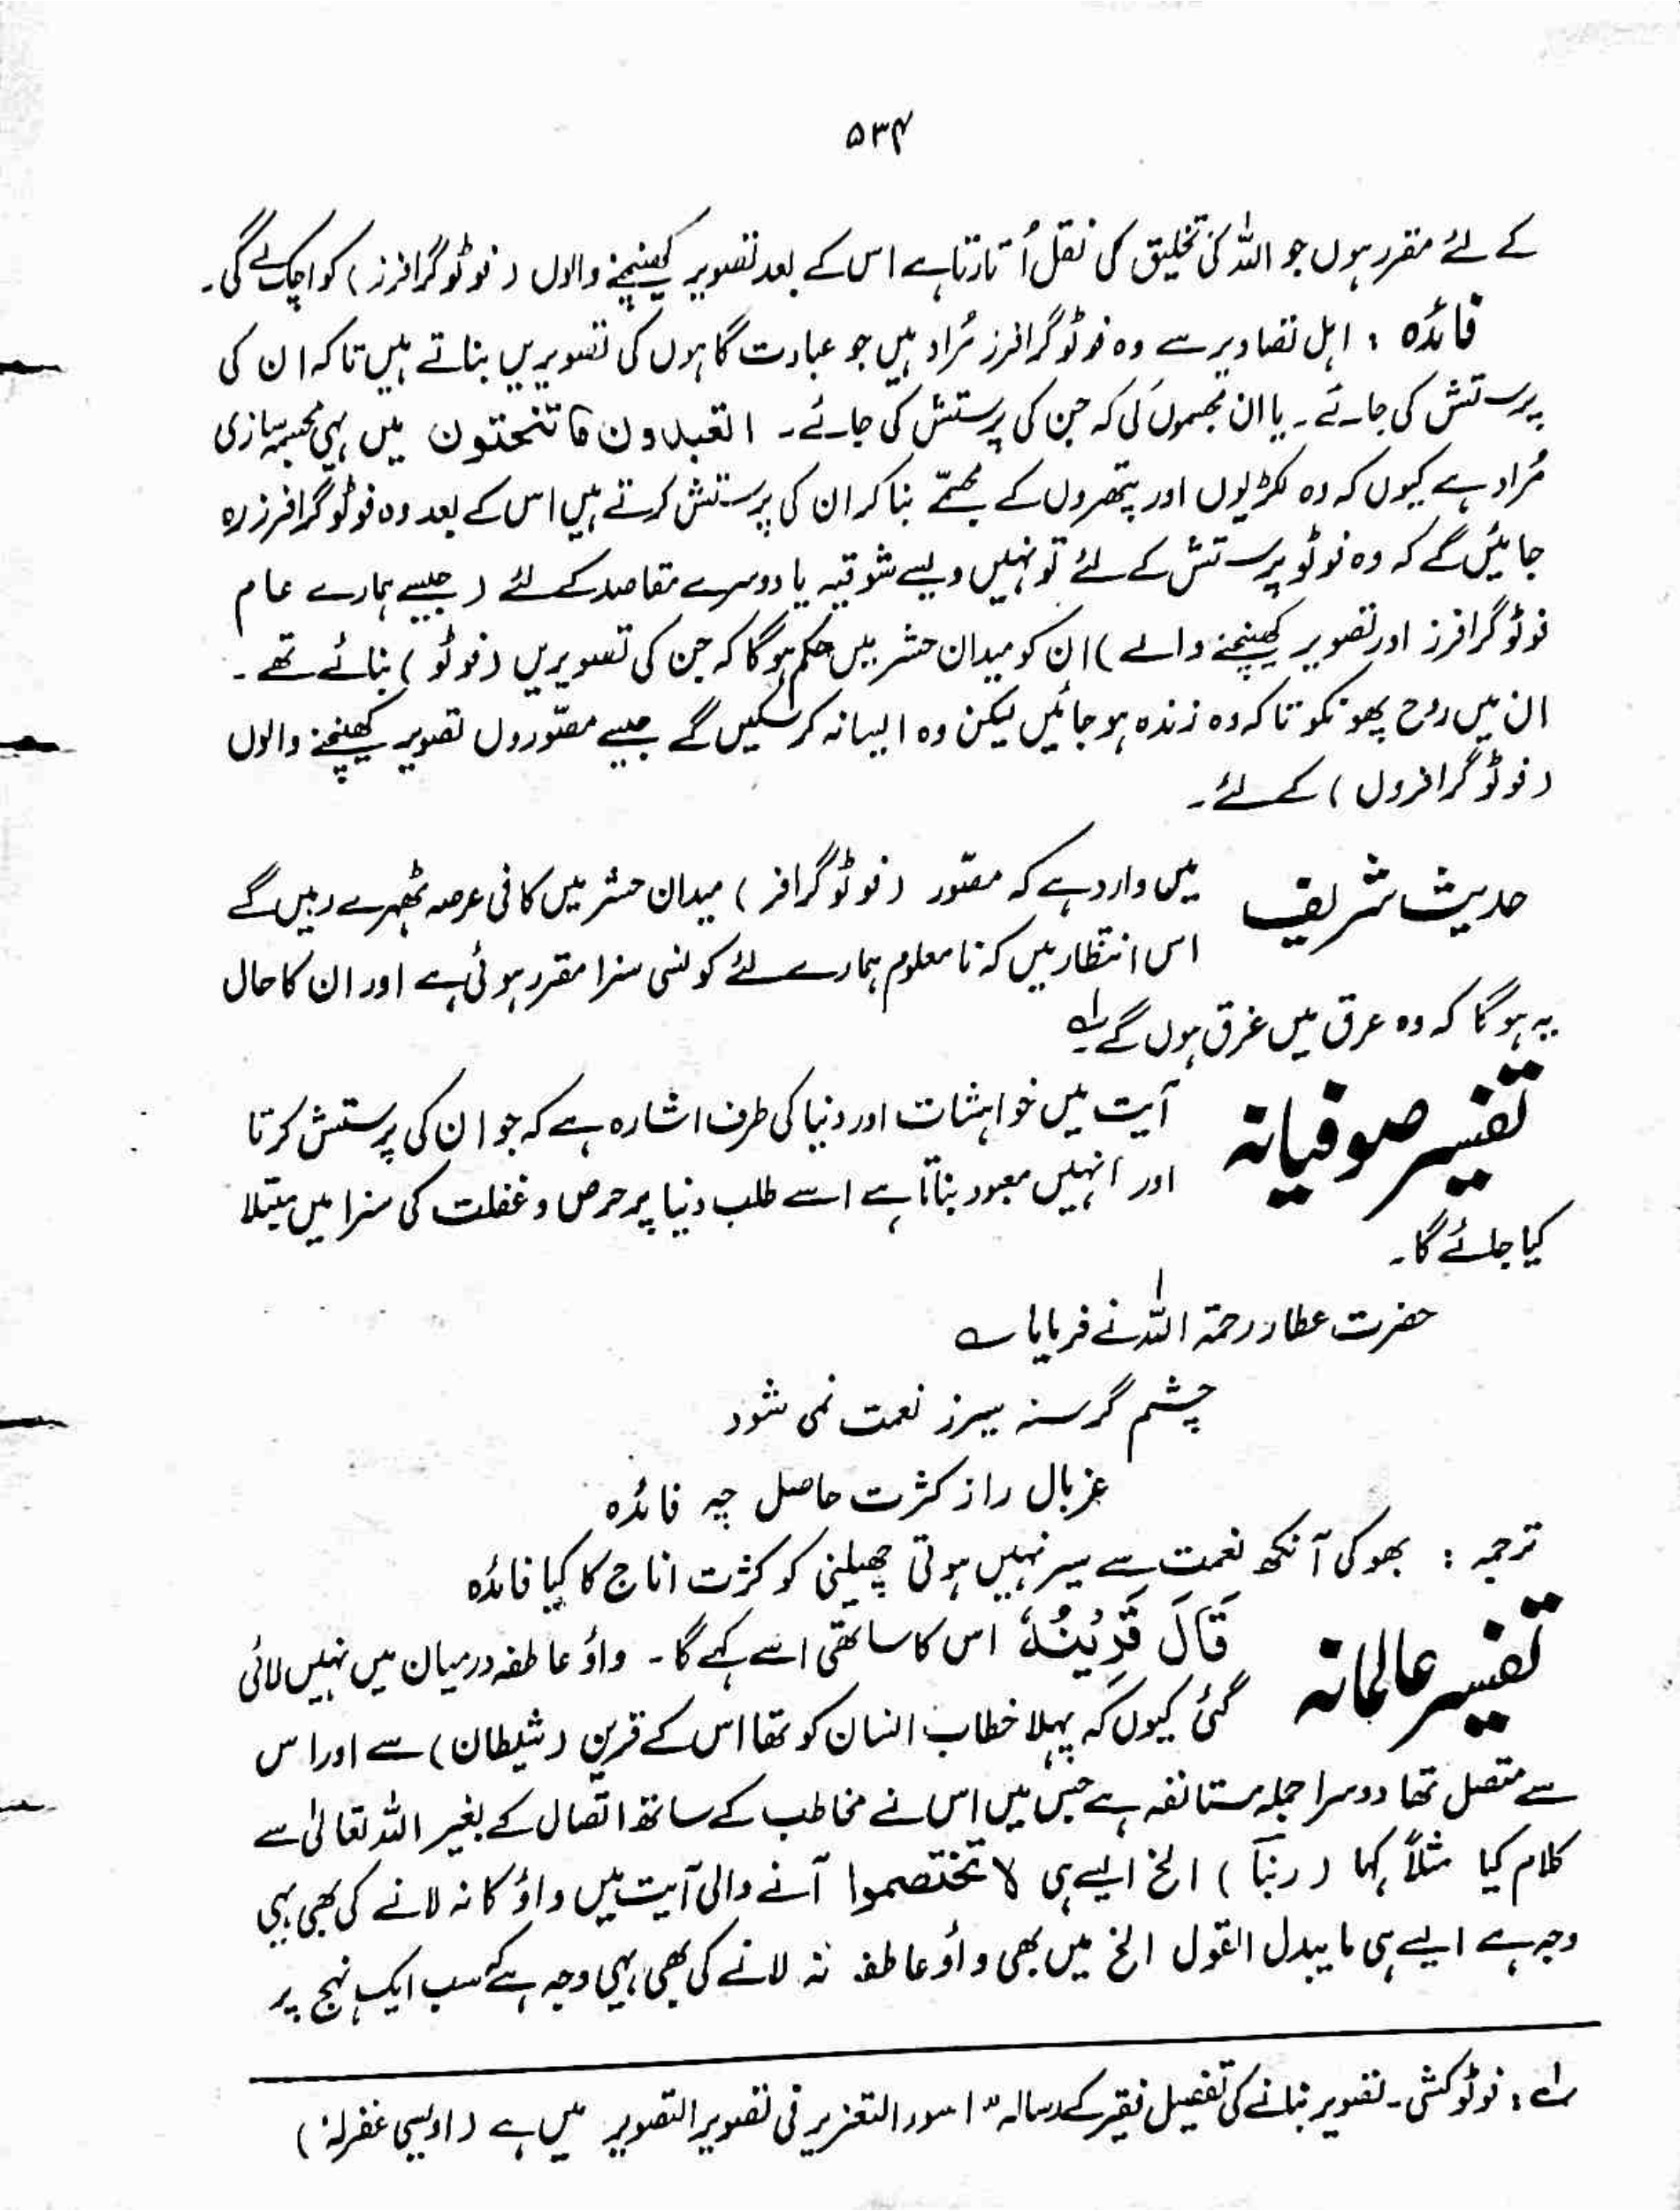 ۵۳۴
کے لئے مقرر ہوں جو اللہ کی تخلیق کی نقل اُتارتا ہے اس کے بعد تصویر کھینچنے والوں (فوٹوگرافرز) کو اچک لے گی۔
فائدہ : اہل تصاویر سے وہ فوٹوگرافرز مُراد ہیں جو عبادت گاہوں کی تصویریں بناتے ہیں تاکہ ان کی
پرستش کی جائے۔ یا ان مجسموں کی کہ جن کی پرستش کی جائے۔ اتعبدون ما تنحتون میں یہی مجسمہ سازی
مُراد ہے کیوں کہ وہ لکڑیوں اور پتھروں کے مجسمّے بنا کر ان کی پرستش کرتے ہیں اس کے بعد وہ فوٹوگرافرز رہ
جائیں گے کہ وہ فوٹو پرستش کے لئے تو نہیں ویسے شوقیہ یا دوسرے مقاصد کے لئے (جیسے ہمارے عام
فوٹوگرافرز اور تصویر کھینچنے والے) ان کو میدان حشر میں حکم ہوگا کہ جن کی تصویریں (فوٹو) بنائے تھے۔
ان میں روح پھونکو تاکہ وہ زندہ ہو جائیں لیکن وہ ایسا نہ کر سکیں گے جیسے مصّوروں تصویر کھینچنے والوں
(فوٹوگرافروں) کے لئے۔
حدیث شریف میں وارد ہے کہ مصّور (فوٹوگرافر) میدان حشر میں کافی عرصہ ٹھہرے رہیں گے
اس انتظار میں کہ نامعلوم ہمارے لئے کونسی سزا مقرر ہوئی ہے اور ان کا حال
یہ ہوگا کہ وہ عرق میں غرق ہوں گے۔لہ
تفسیر صوفیانہ آیت میں خواہشات اور دنیا کی طرف اشارہ ہے کہ جو ان کی پرستش کرتا
اور انہیں معبود بناتا ہے اسے طلب دنیا پر حرص و غفلت کی سزا میں مبتلا
کیا جائے گا۔
حضرت عطار رحمۃ اللہ نے فرمایا ؎
چشم گرسنہ سیرز نعمت نمی شود
غربال راز کثرت حاصل چہ فائدہ
ترجمہ : بھوکی آنکھ نعمت سے سیر نہیں ہوتی چھیلنی کو کثرت اناج کا کیا فائدہ
تفسیر عالمانہ قَالَ قَرِیْنُہٗ اس کا ساتھی اسے کہے گا۔ واؤ عاطفہ درمیان میں نہیں لائی
گئی کیوں کہ پہلا خطاب انسان کو تھا اس کے قرین (شیطان) سے اور اس
سے متصل تھا دوسرا جملہ مستانفہ ہے جس میں اس نے مخاطب کے ساتھ اتّصال کے بغیر اللہ تعالیٰ سے
کلام کیا مثلاً کہا (ربنآ) الخ ایسے ہی لا تختصموا آنے والی آیت میں واؤ کا نہ لانے کی بھی یہی
وجہ ہے ایسے ہی ما یبدل القول الخ میں بھی واؤ عاطفہ نہ لانے کی بھی یہی وجہ ہے کہ سب ایک نہج پر
لہ : فوٹو کشی۔ تصویر بنانے کی تفصیل فقیر کے رسالہ " اسور التعزیر فی تصویر التصویر میں ہے (اویسی غفرلہٗ)